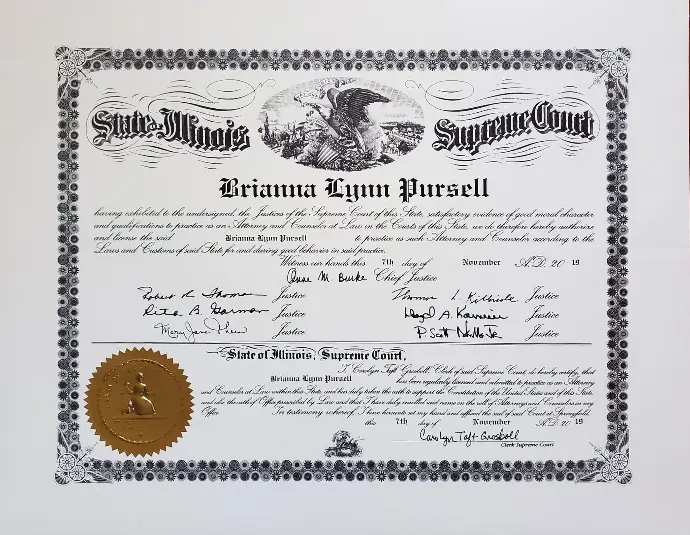 State of Illinois Supreme Court
Brianna Lynn Pursell
having exhibited to the undersigned, the Justices of the Supreme Court of this State, satisfactory evidence of good moral character
and qualifications to practice as an Attorney and Counselor at Law in the Courts of this State, we do therefore hereby authorize
and license the said Brianna Lynn Pursell to practice as such Attorney and Counselor according to the
Laws and Customs of said State for and during good behavior in said practice.
Witness our hands this 7th day of November A.D. 20 19
Anne M. Burke Chief Justice
Robert R. Thomas Justice Thomas L. Kilbride Justice
Rita B. Garman Justice Lloyd A. Karmeier Justice
Mary Jane Theis Justice P. Scott Neville Jr. Justice
State of Illinois, Supreme Court,
I, Carolyn Taft Grosboll, Clerk of said Supreme Court, do hereby certify, that
Brianna Lynn Pursell has been regularly licensed and admitted to practice as an Attorney
and Counselor at Law within this State, and has duly taken the oath to support the Constitution of the United States and of this State,
and also the oath of Office prescribed by Law and that I have duly enrolled said name on the roll of Attorneys and Counselors in my
Office. In testimony whereof, I have hereunto set my hand and affixed the seal of said Court at Springfield,
this 7th day of November A.D. 20 19
Carolyn Taft Grosboll
Clerk Supreme Court